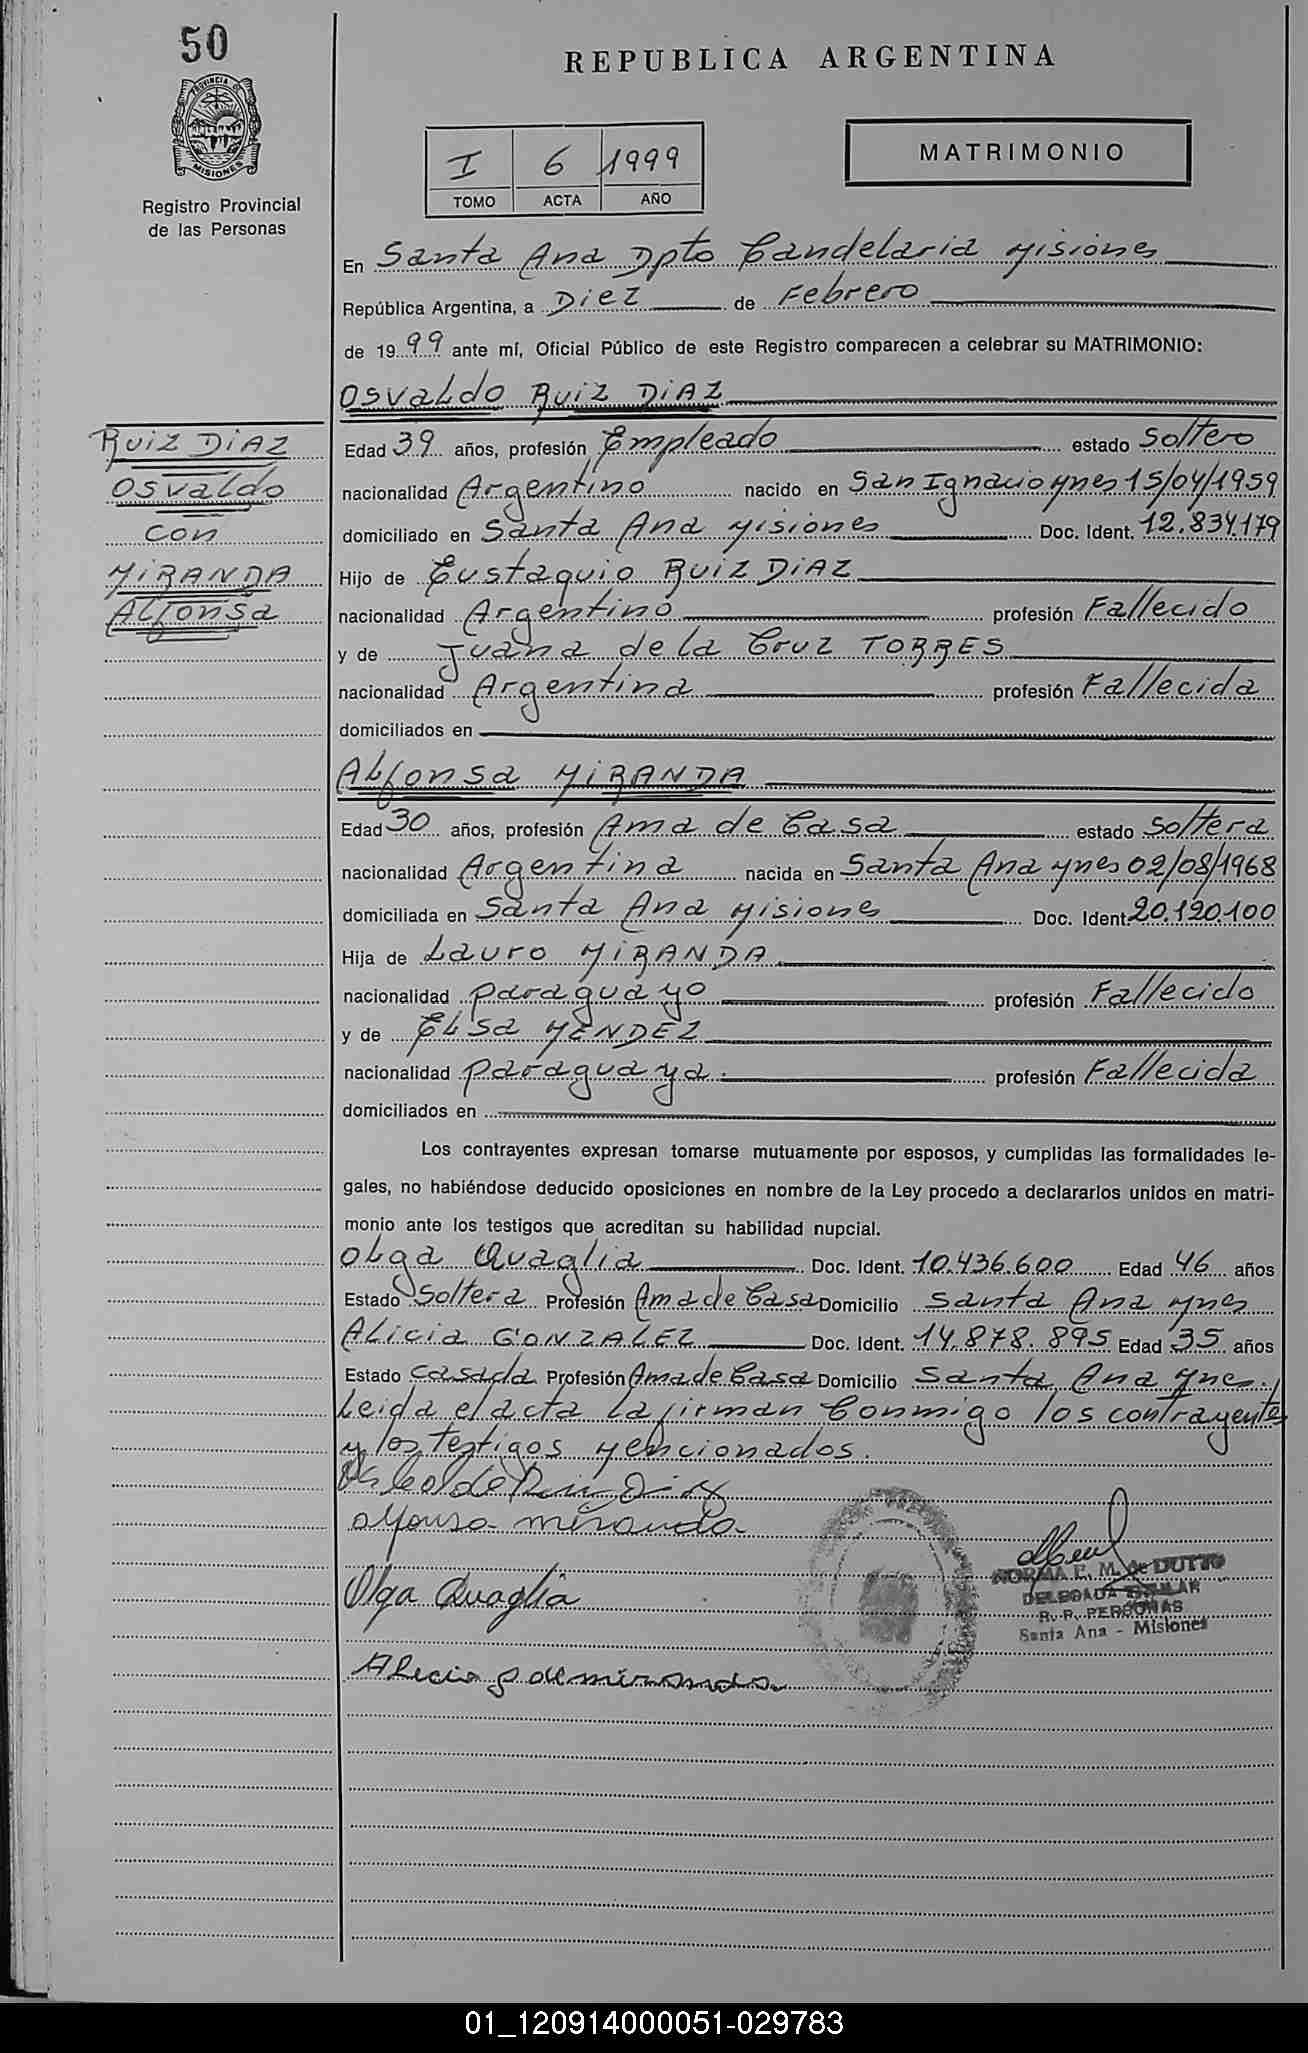 50
REPUBLICA ARGENTINA
PROVINCIA DE
MISIONES
Registro Provincial
de las Personas
I 6 1999
TOMO ACTA AÑO
MATRIMONIO
En Santa Ana Dpto Candelaria Misiones
República Argentina, a Diez de Febrero
de 1999 ante mí, Oficial Público de este Registro comparecen a celebrar su MATRIMONIO:
Osvaldo Ruiz Diaz
Ruiz Diaz
Osvaldo
con
Miranda
Alfonsa
Edad 39 años, profesión Empleado estado Soltero
nacionalidad Argentino nacido en San Ignacio Mnes 15/04/1959
domiciliado en Santa Ana Misiones Doc. Ident. 12.834.179
Hijo de Eustaquio Ruiz Diaz
nacionalidad Argentino profesión Fallecido
y de Juana de la Cruz TORRES
nacionalidad Argentina profesión Fallecida
domiciliados en
Alfonsa MIRANDA
Edad 30 años, profesión Ama de Casa estado Soltera
nacionalidad Argentina nacida en Santa Ana Mnes 02/08/1968
domiciliada en Santa Ana Misiones Doc. Ident. 20.120.100
Hija de Lauro MIRANDA
nacionalidad paraguayo profesión Fallecido
y de Elsa MENDEZ
nacionalidad paraguaya. profesión Fallecida
domiciliados en
Los contrayentes expresan tomarse mutuamente por esposos, y cumplidas las formalidades le-
gales, no habiéndose deducido oposiciones en nombre de la Ley procedo a declararlos unidos en matri-
monio ante los testigos que acreditan su habilidad nupcial.
Olga Quaglia Doc. Ident. 10.436.600 Edad 46 años
Estado Soltera Profesión Ama de Casa Domicilio Santa Ana Mnes
Alicia GONZALEZ Doc. Ident. 14.878.895 Edad 35 años
Estado Casada Profesión Ama de Casa Domicilio Santa Ana Mnes.
Leida el acta la firman Conmigo los contrayentes
y los testigos Mencionados.
Ruiz Diaz
Alfonsa miranda
Olga Quaglia
Alicia g de miranda
NORMA E. M. de DUTTO
DELEGADA TITULAR
R. P. PERSONAS
Santa Ana - Misiones
01_120914000051-029783